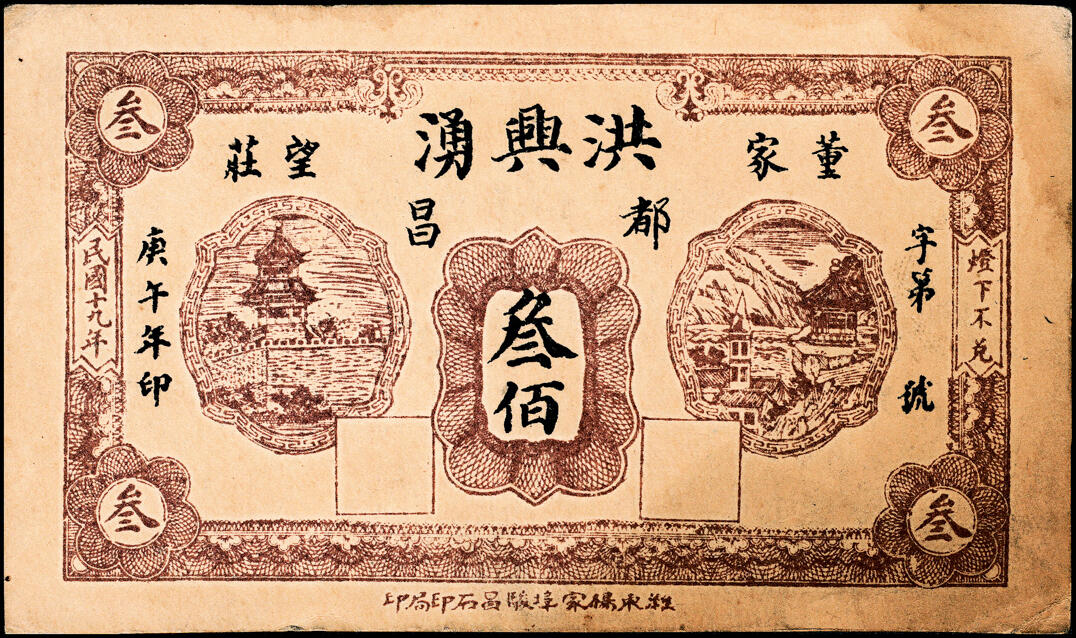 叁
叁
洪興湧
董家
望莊
都昌
字第 號
燈下不兌
叁佰
庚午年印
民國十九年
叁
叁
濰東楊家埠駿昌石印局印